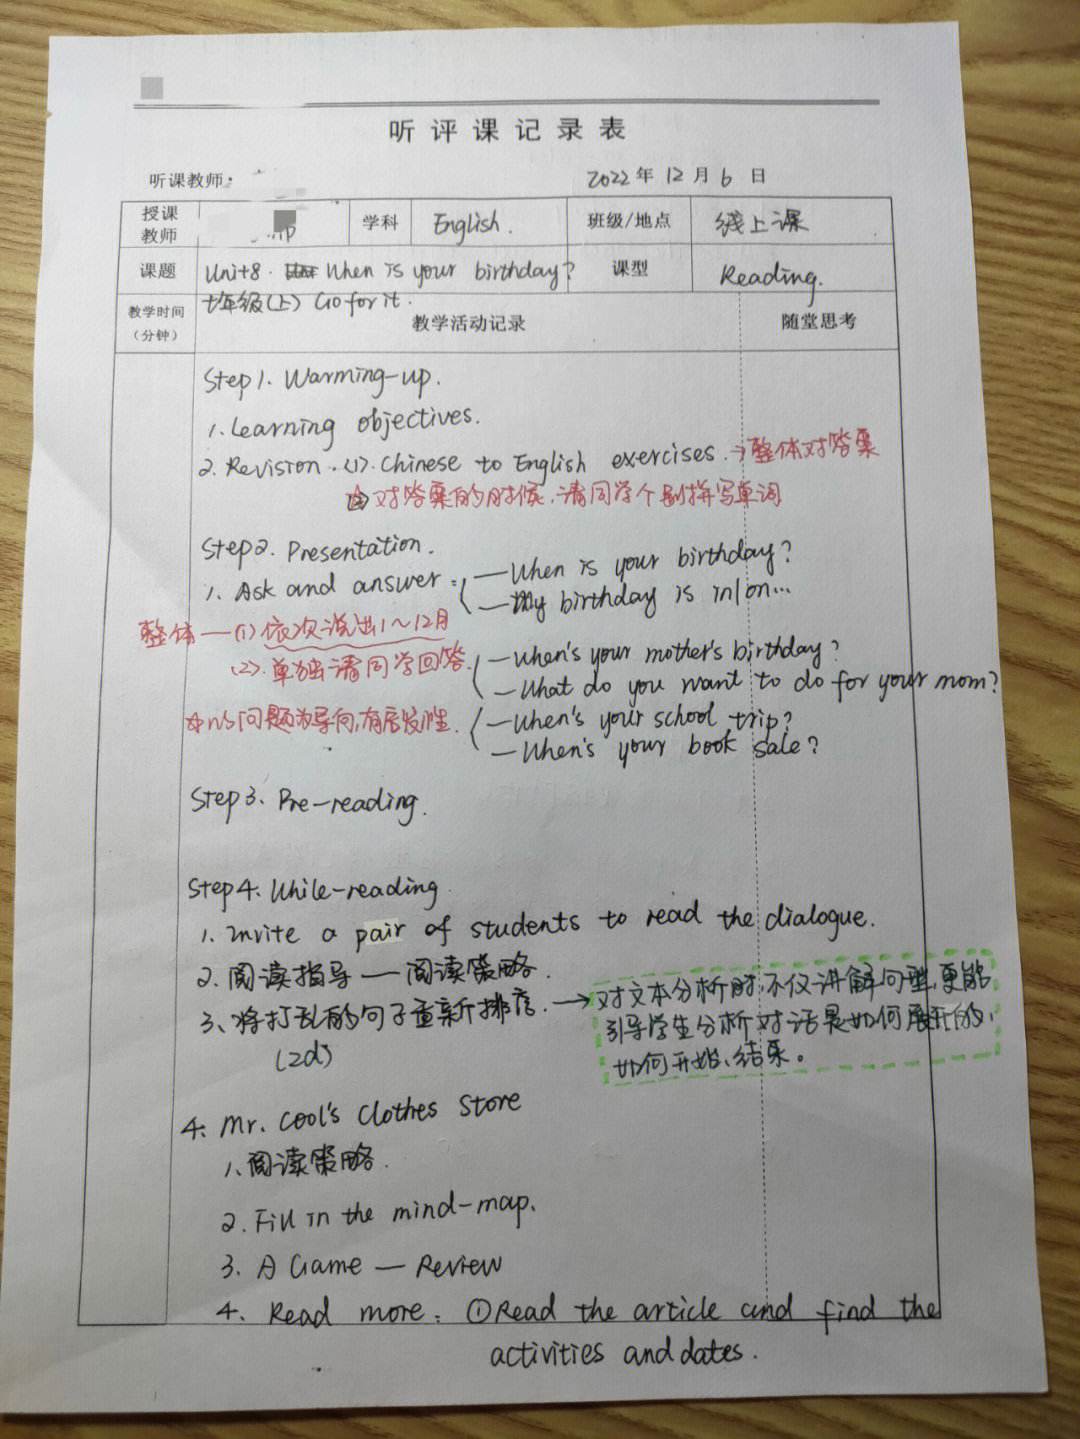 听评课记录表
听课教师:
2022年12月6日
授课教师 学科 English. 班级/地点 线上课
课题 Unit 8. When is your birthday? 课型 Reading.
七年级(上) Go for it.
教学时间(分钟) 教学活动记录 随堂思考
Step1. Warming-up.
1. Learning objectives.
2. Revision. (1). Chinese to English exercises. →整体对答案
对答案的时候,请同学个别拼写单词
Step2. Presentation.
1. Ask and answer: —When is your birthday?
—My birthday is in/on...
整体—(1) 依次说出1~12月
(2). 单独请同学回答. —When's your mother's birthday?
—What do you want to do for your mom?
☆以问题为导向,有启发性. —When's your school trip?
—When's your book sale?
Step3. Pre-reading.
Step4. While-reading.
1. Invite a pair of students to read the dialogue.
2. 阅读指导—阅读策略.
3、将打乱的句子重新排序. →对文本分析时,不仅讲解句型,更能
引导学生分析对话是如何展开的,
(2d)
如何开始、结束。
4. Mr. Cool's Clothes Store
1、阅读策略.
2. Fill in the mind-map.
3. A Game — Review
4. Read more: ①Read the article and find the
activities and dates.